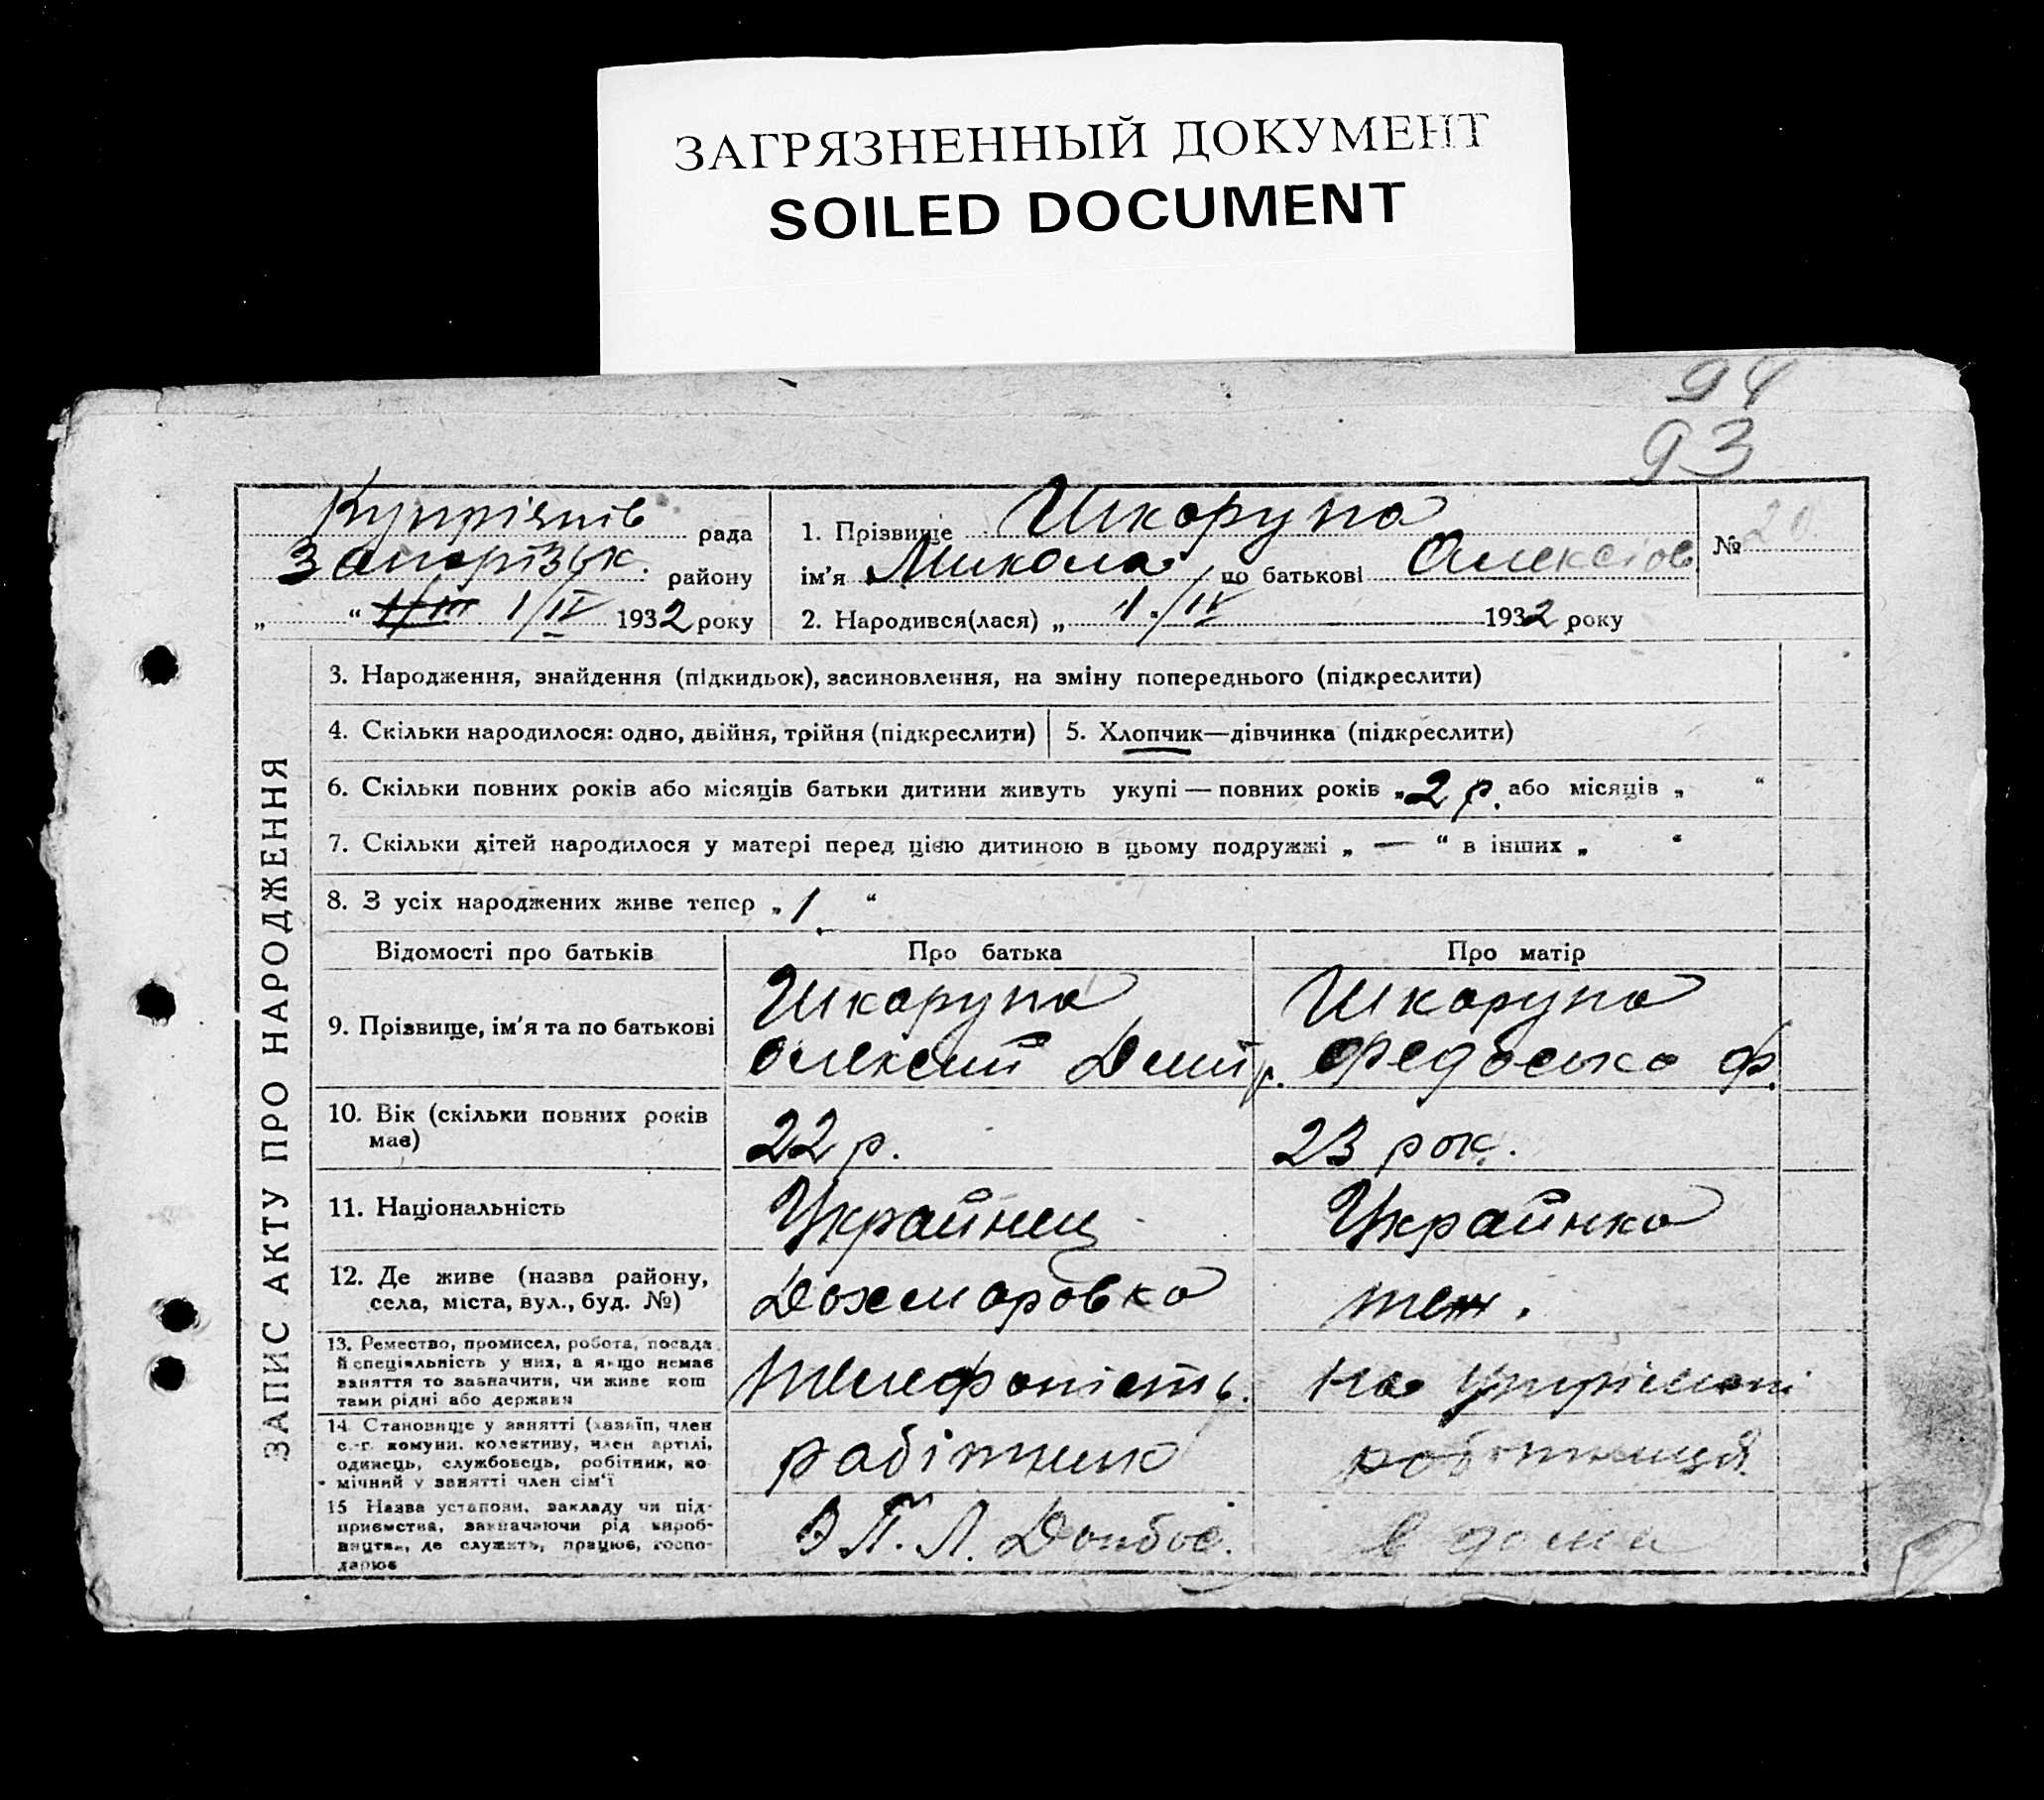 ЗАГРЯЗНЕННЫЙ ДОКУМЕНТ
SOILED DOCUMENT
94
93
Купріянів рада
Запорізьк. району
„ “ 1/III 1/IV 1932 року
1. Прізвище Шкорупа
ім’я Микола по батькові Олексіов
№ 20
2. Народився(лася) „ 1/IV 1932 року
ЗАПИС АКТУ ПРО НАРОДЖЕННЯ
3. Народження, знайдення (підкидьок), засиновлення, на зміну попереднього (підкреслити)
4. Скільки народилося: одно, двійня, трійня (підкреслити)
5. Хлопчик—дівчинка (підкреслити)
6. Скільки повних років або місяців батьки дитини живуть укупі — повних років „ 2 р. або місяців „ “
7. Скільки дітей народилося у матері перед цією дитиною в цьому подружжі „ — “ в інших „ “
8. З усіх народжених живе тепер „ 1 “
Відомості про батьків
Про батька
Про матір
9. Прізвище, ім’я та по батькові
Шкорупа
Олексій Дмитр.
Шкорупа
Федоська Ф.
10. Вік (скільки повних років
має)
22 р.
23 рок.
11. Національність
Украйнец
Украйнка
12. Де живе (назва району,
села, міста, вул., буд. №)
теж.
13. Ремество, промисел, робота, посада
й спеціяльність у них, а якщо немає
заняття то зазначити, чи живе кош
тами рідні або держави
телефоність.
на
14. Становище у занятті (хазяїн, член
с.-г. комуни, колективу, член артілі,
одинець, службовець, робітник, по-
мічний у занятті член сім’ї
робітник
робітниця
15 Назва установи, закладу чи під-
приємства, зазначаючи рід вироб-
ництва, де служить, працює, госпо-
дарює
В П. Л. Донбас.
в дома